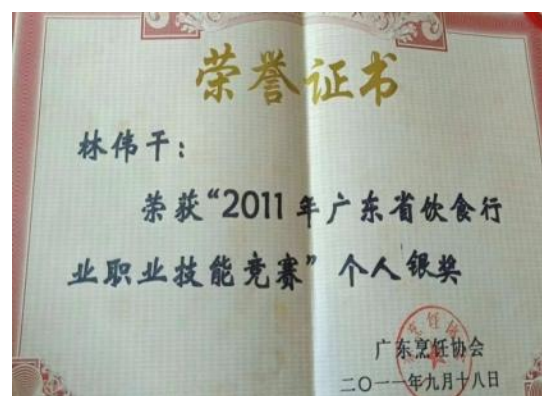 荣誉证书
林伟干：
荣获“2011年广东省饮食行
业职业技能竞赛”个人银奖
广东烹饪协会
二〇一一年九月十八日